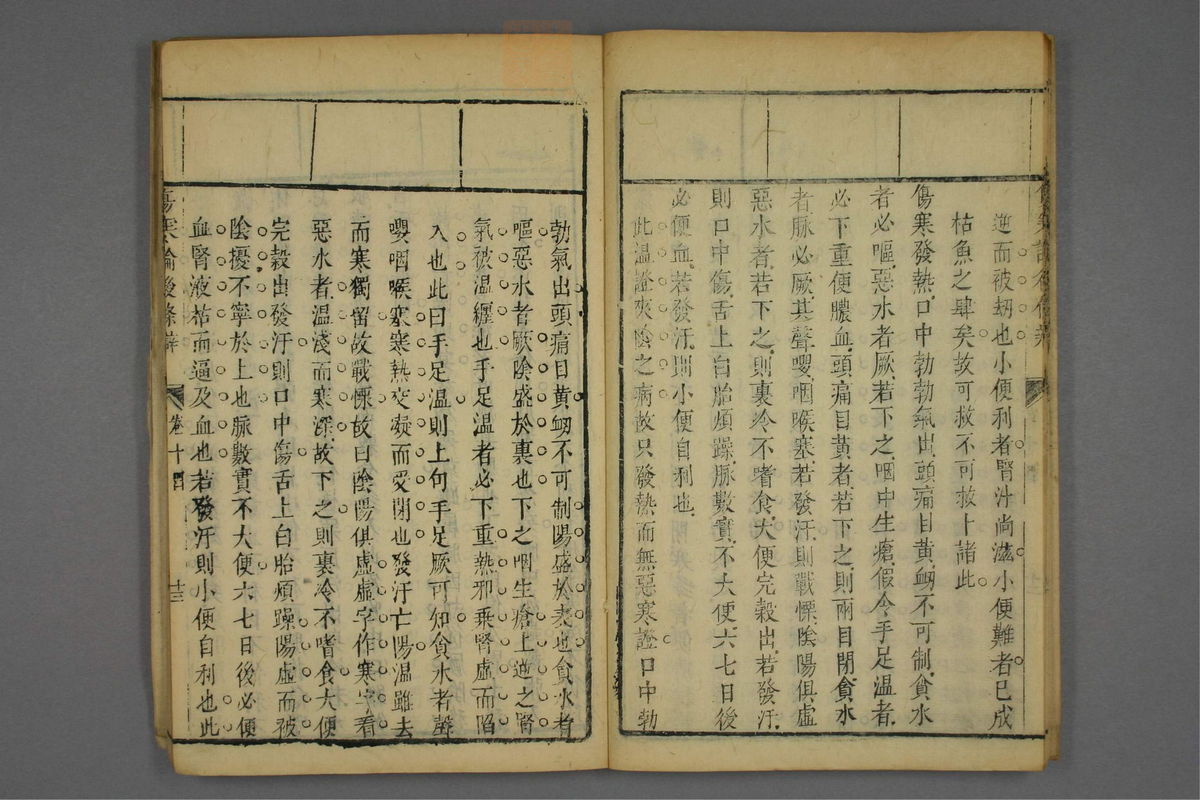 逆而被刼也小便利者腎汁尚滋小便難者已成
枯魚之肆矣故可救不可救卜諸此
傷寒發熱口中勃勃氣出頭痛目黃衄不可制貪水
者必嘔惡水者厥若下之咽中生瘡假令手足溫者
必下重便膿血頭痛目黃者若下之則兩目閉貪水
者脉必厥其聲嚶咽喉塞若發汗則戰慄陰陽俱虛
惡水者若下之則裏冷不嗜食大便完穀出若發汗
則口中傷舌上白胎煩躁脉數實不大便六七日後
必便血若發汗則小便自利也
此溫證夾陰之病故只發熱而無惡寒證口中勃
勃氣出頭痛目黃衄不可制陽盛於表也貪水者
嘔惡水者厥陰盛於裏也下之咽生瘡上逆之腎
氣被溫纏也手足溫者必下重熱邪乗腎虛而陷
入也此曰手足溫則上句手足厥可知貪水者聲
嚶咽喉塞寒熱交凝而受閉也發汗亡陽溫雖去
而寒獨留故戰慄故曰陰陽俱虛虛字作寒字看
惡水者溫淺而寒深故下之則裏冷不嗜食大便
完穀出發汗則口中傷舌上白胎煩躁陽虛而被
陰擾不寧於上也脈數實不大便六七日後必便
血腎液枯而逼及血也若發汗則小便自利也此
傷寒論後條辨 卷十四 十三